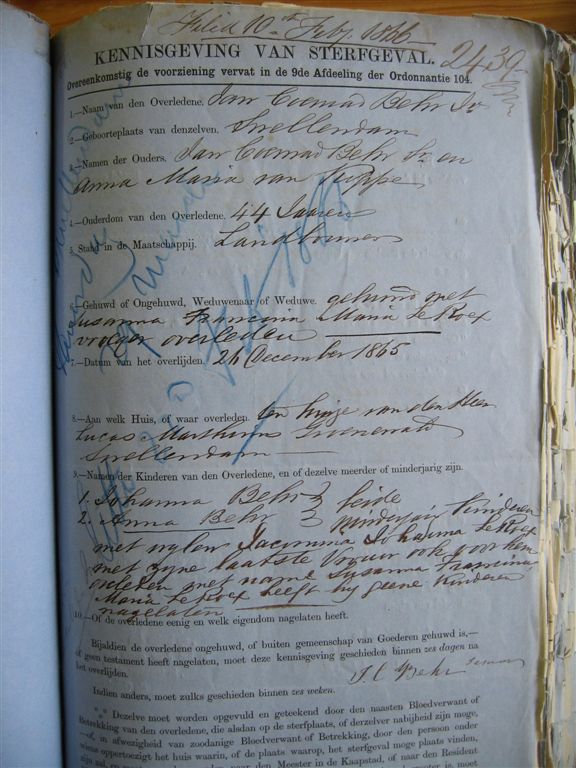 Filed 10th Feby 1866
KENNISGEVING VAN STERFGEVAL.
Overeenkomstig de voorziening vervat in de 9de Afdeeling der Ordonnantie 104.
1.—Naam van den Overledene. Jan Coenraad Behr Jr
2.—Geboorteplaats van denzelven. Swellendam
3.—Namen der Ouders. Jan Coenraad Behr Sr en
Anna Maria van
4.—Ouderdom van den Overledene. 44 Jaaren
5. Stand in de Maatschappij. Landbouwer
6.—Gehuwd of Ongehuwd, Weduwenaar of Weduwe. gehuwd met
Susanna Francina Maria Le Roex
vroeger overleden
7.—Datum van het overlijden. 26 December 1865
8.—Aan welk Huis, of waar overleden. ten huize van den Heer
Lucas Marthinus
Swellendam
9.—Namen der Kinderen van den Overledene, en of dezelve meerder of minderjarig zijn.
1. Johanna Behr } beide
2. Anna Behr } minderjarig kinderen
met wylen Jacomina Johanna Le Roex
met zyne laatste Vrouw ook voor hem
overleden met name Susanna Francina
Maria Le Roex heeft hy geene kinderen
nagelaten
10.—Of de overledene eenig en welk eigendom nagelaten heeft.
Bijaldien de overledene ongehuwd, of buiten gemeenschap van Goederen gehuwd is,—
of geen testament heeft nagelaten, moet deze kennisgeving geschieden binnen zes dagen na
het overlijden.
J C Behr Senior
Indien anders, moet zulks geschieden binnen zes weken.
Dezelve moet worden opgevuld en geteekend door den naasten Bloedverwant of
Betrekking van den overledene, die alsdan op de sterfplaats, of derzelver nabijheid zijn moge,
—of, in afwezigheid van zoodanige Bloedverwant of Betrekking, door den persoon onder
wiens oppertoezigt het huis waarin, of de plaats waarop, het sterfgeval moge plaats vinden,
den Meester in de Kaapstad, of aan den Resident